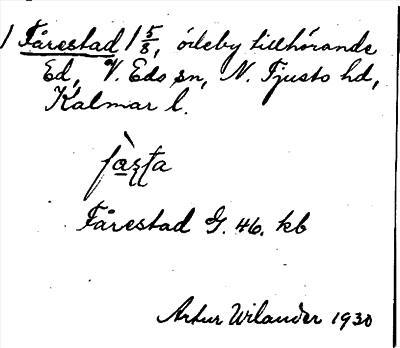 / Fårestad 1 5/8, ödeby tillhörande
Ed, V. Eds sn, N. Tjusts hd,
Kalmar l.
Fårestad G. 46. kb
Artur Wilander 1930